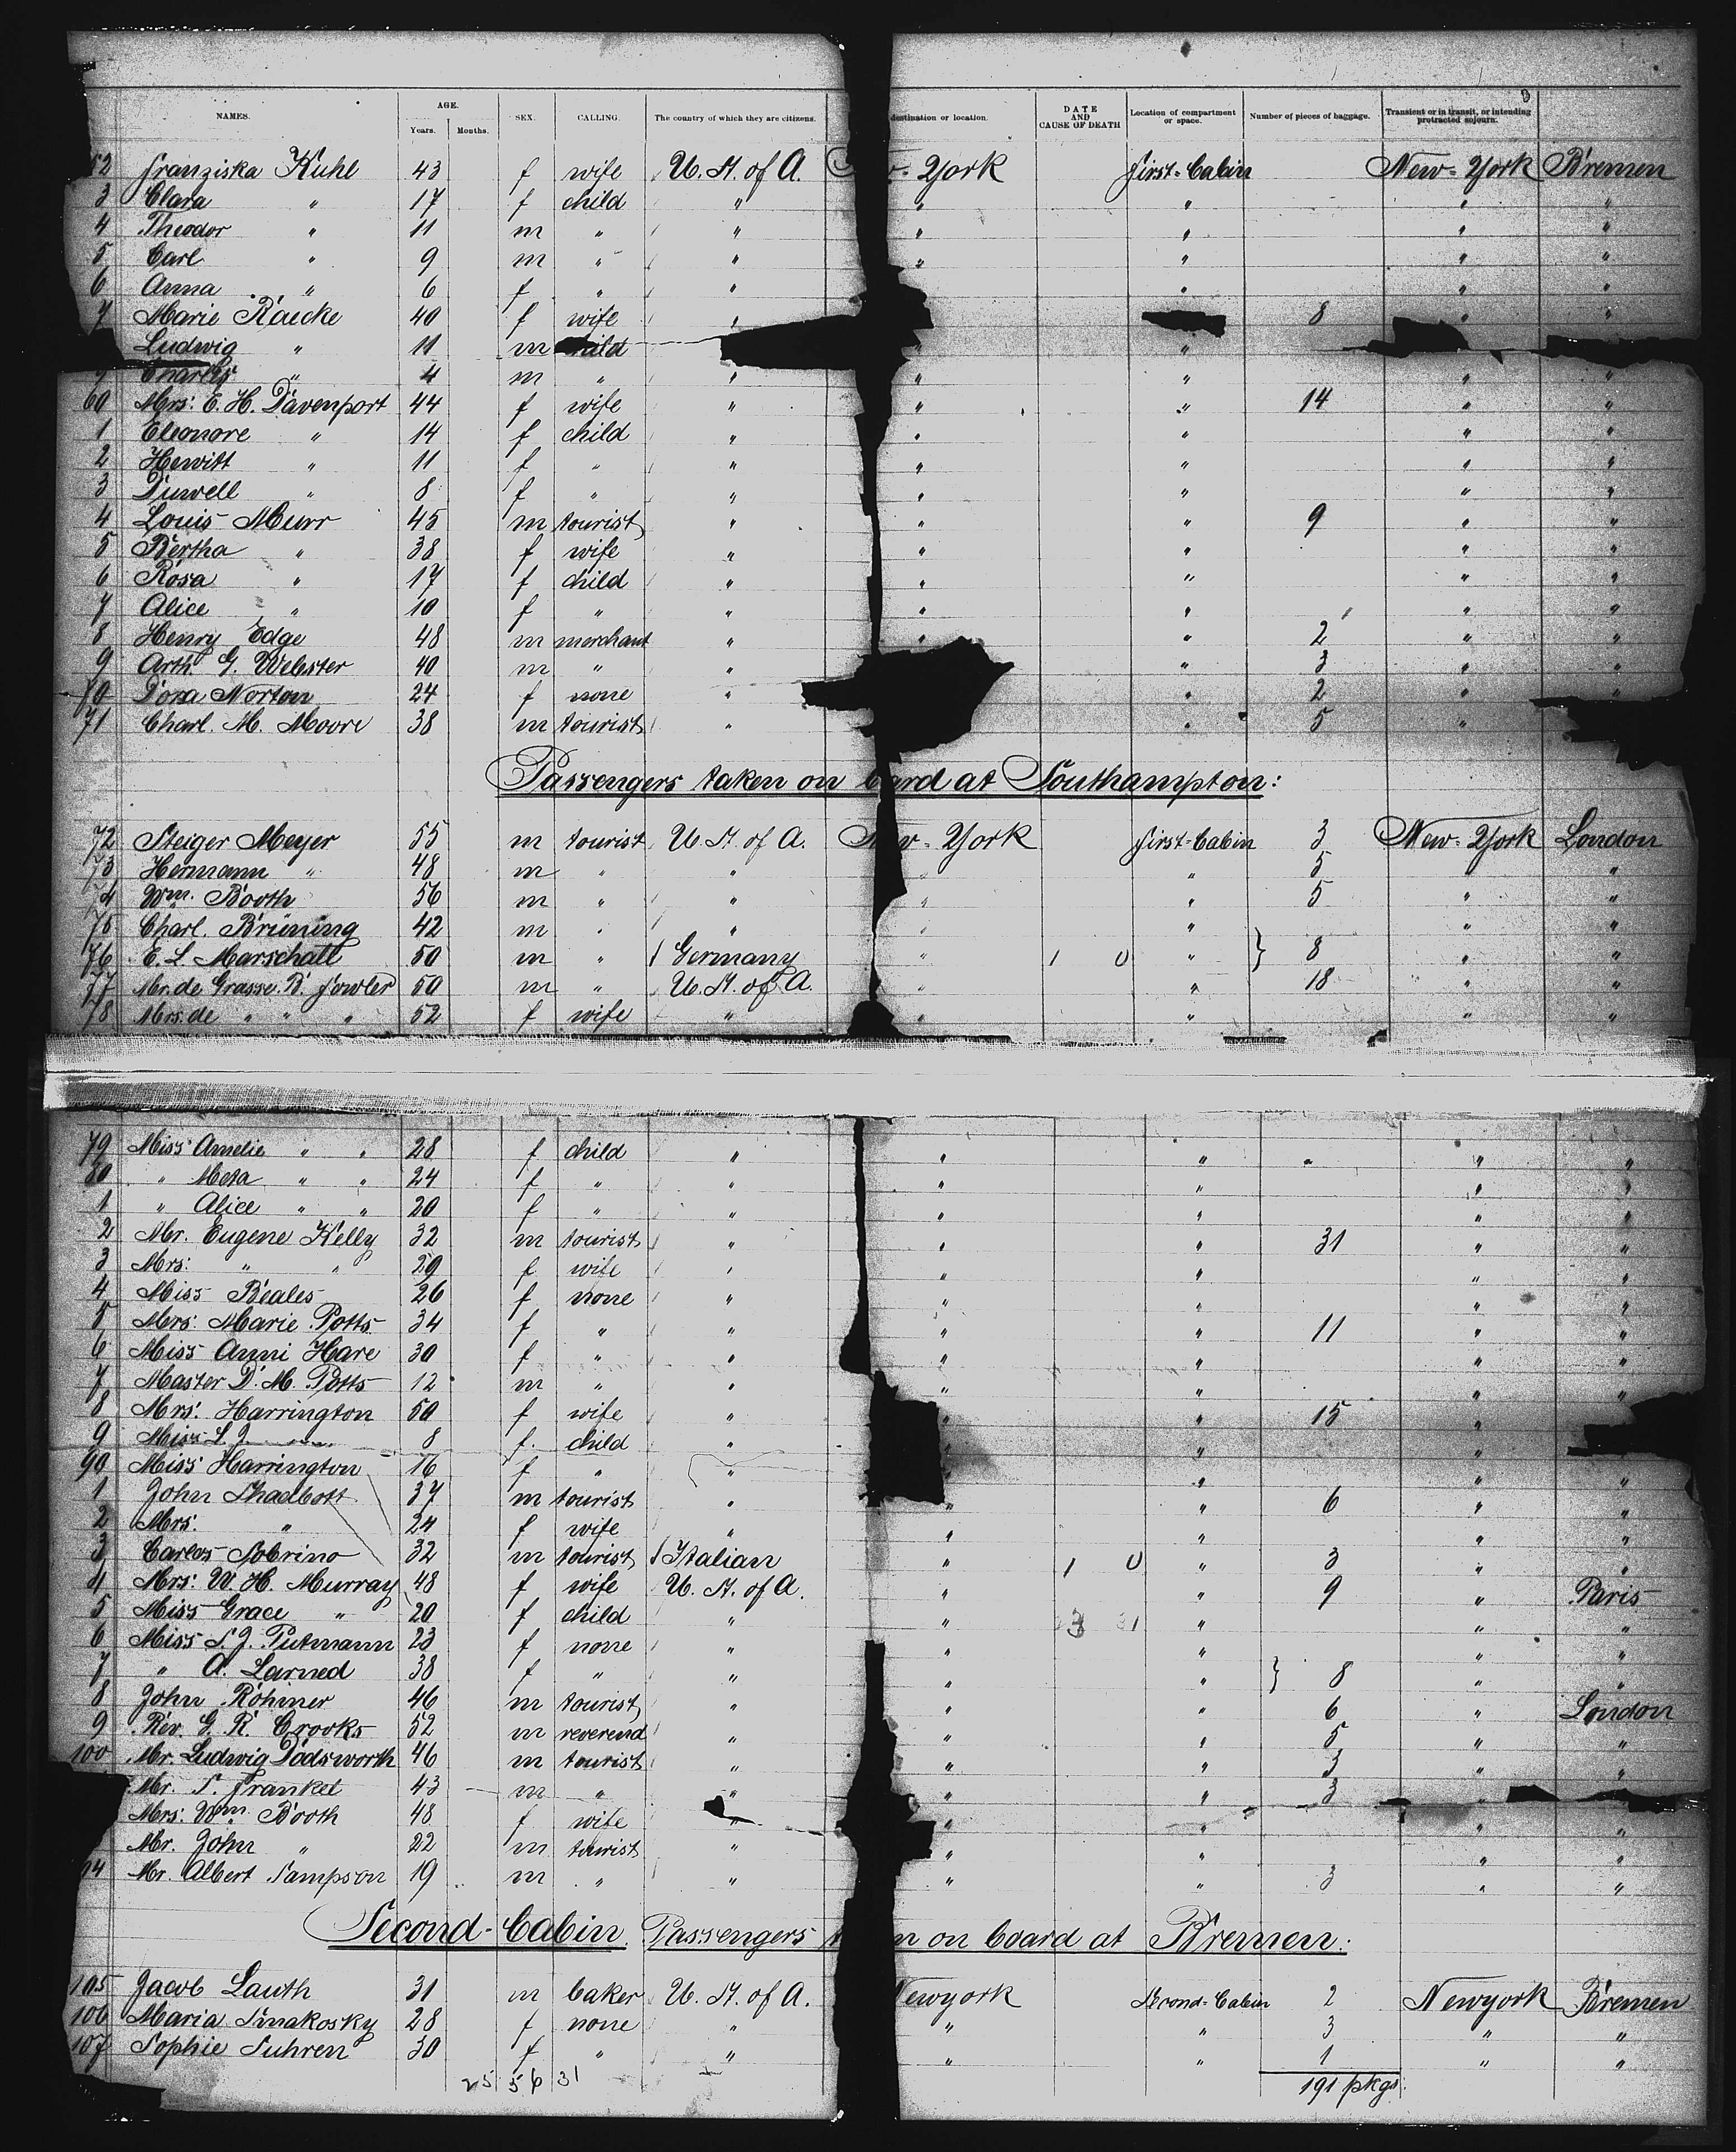 NAMES. AGE. Years. Months. SEX. CALLING. The country of which they are citizens. destination or location. DATE AND CAUSE OF DEATH Location of compartment or space. Number of pieces of baggage. Transient or in transit, or intending protracted sojourn.
52 Franziska Kuhl 43 f wife U. St. of A. York First-Cabin New-York Bremen
3 Clara " 17 f child " " " " "
4 Theodor " 11 m " " " " " "
5 Carl " 9 m " " " " " "
6 Anna " 6 f " " " " " "
7 Marie Raecke 40 f wife " 8 " "
Ludwig " 11 m child " "
9 Charles " 4 m " " " " " "
60 Mrs. E. H. Davenport 44 f wife " " " 14 " "
1 Eleonore " 14 f child " " " " "
2 Hewitt " 11 f " " " " " "
3 Duwell " 8 f " " " " " "
4 Louis Murr 45 m tourist " " " 9 " "
5 Bertha " 38 f wife " " " " "
6 Rosa " 17 f child " " " " "
7 Alice " 10 f " " " " " "
8 Henry Edge 48 m merchant " " " 2 " "
9 Arth. G. Webster 40 m " " " 3 " "
70 Dora Norton 24 f none " " 2 " "
71 Charl. M. Moore 38 m tourist " " 5 "
Passengers taken on board at Southampton:
72 Steiger Meyer 55 m tourist U. St. of A. New-York First-Cabin 3 New-York London
73 Hermann " 48 m " " " " 5 " "
74 Wm. Booth 56 m " " " " 5 " "
75 Charl. Brüning 42 m " " " " " "
76 E. L. Marschall 50 m " Germany " 1 0 " } 8 " "
77 Mr. de Grasse B. Fowler 50 m " U. St. of A. " " 18 " "
78 Mrs. de " " " 52 f wife " " " " "
79 Miss Amelie " " 28 f child " " " " " "
80 " Meta " " 24 f " " " " " "
1 " Alice " " 20 f " " " " " "
2 Mr. Eugene Kelly 32 m tourist " " " 31 " "
3 Mrs. " " 29 f wife " " " " "
4 Miss Beales 26 f none " " " " "
5 Mrs. Marie Potts 34 f " " " " 11 " "
6 Miss Anni Hare 30 f " " " " " "
7 Master D. M. Potts 12 m " " " " " "
8 Mrs. Harrington 50 f wife " " " 15 "
9 Miss 8 f. child " " " "
90 Miss Harrington 16 f " " " " " "
1 John Shadbott 37 m tourist " " " 6 " "
2 Mrs. " 24 f wife " " " " "
3 Carlos Sobrino 32 m tourist Italian " 1 0 " 3 " "
4 Mrs. W. H. Murray 48 f wife U. St. of A. " " 9 " Paris
5 Miss Grace " 20 f child " " 3 31 " " "
6 Miss S. J. Putmann 23 f none " " " " "
7 " A. Larned 38 f " " " " } 8 " "
8 John Röhmer 46 m tourist " " " 6 " London
9 Rev. G. R. Crooks 52 m reverend " " " 5 " "
100 Mr. Ludwig Dodsworth 46 m tourist " " " 3 " "
Mr. S. Frankel 43 m " " " " 3 "
Mrs. Wm. Booth 48 f wife " " " " "
Mr. John " 22 m tourist " " " " "
04 Mr. Albert Sampson 19 m " " " " 3 " "
Second-Cabin Passengers on board at Bremen:
105 Jacob Lauth 31 m baker U. St. of A. Newyork Second-Cabin 2 Newyork Bremen
106 Maria Smakosky 28 f none " " " 3 " "
107 Sophie Suhren 30 f " " " " 1 " "
25 56 31 191 pkgs.